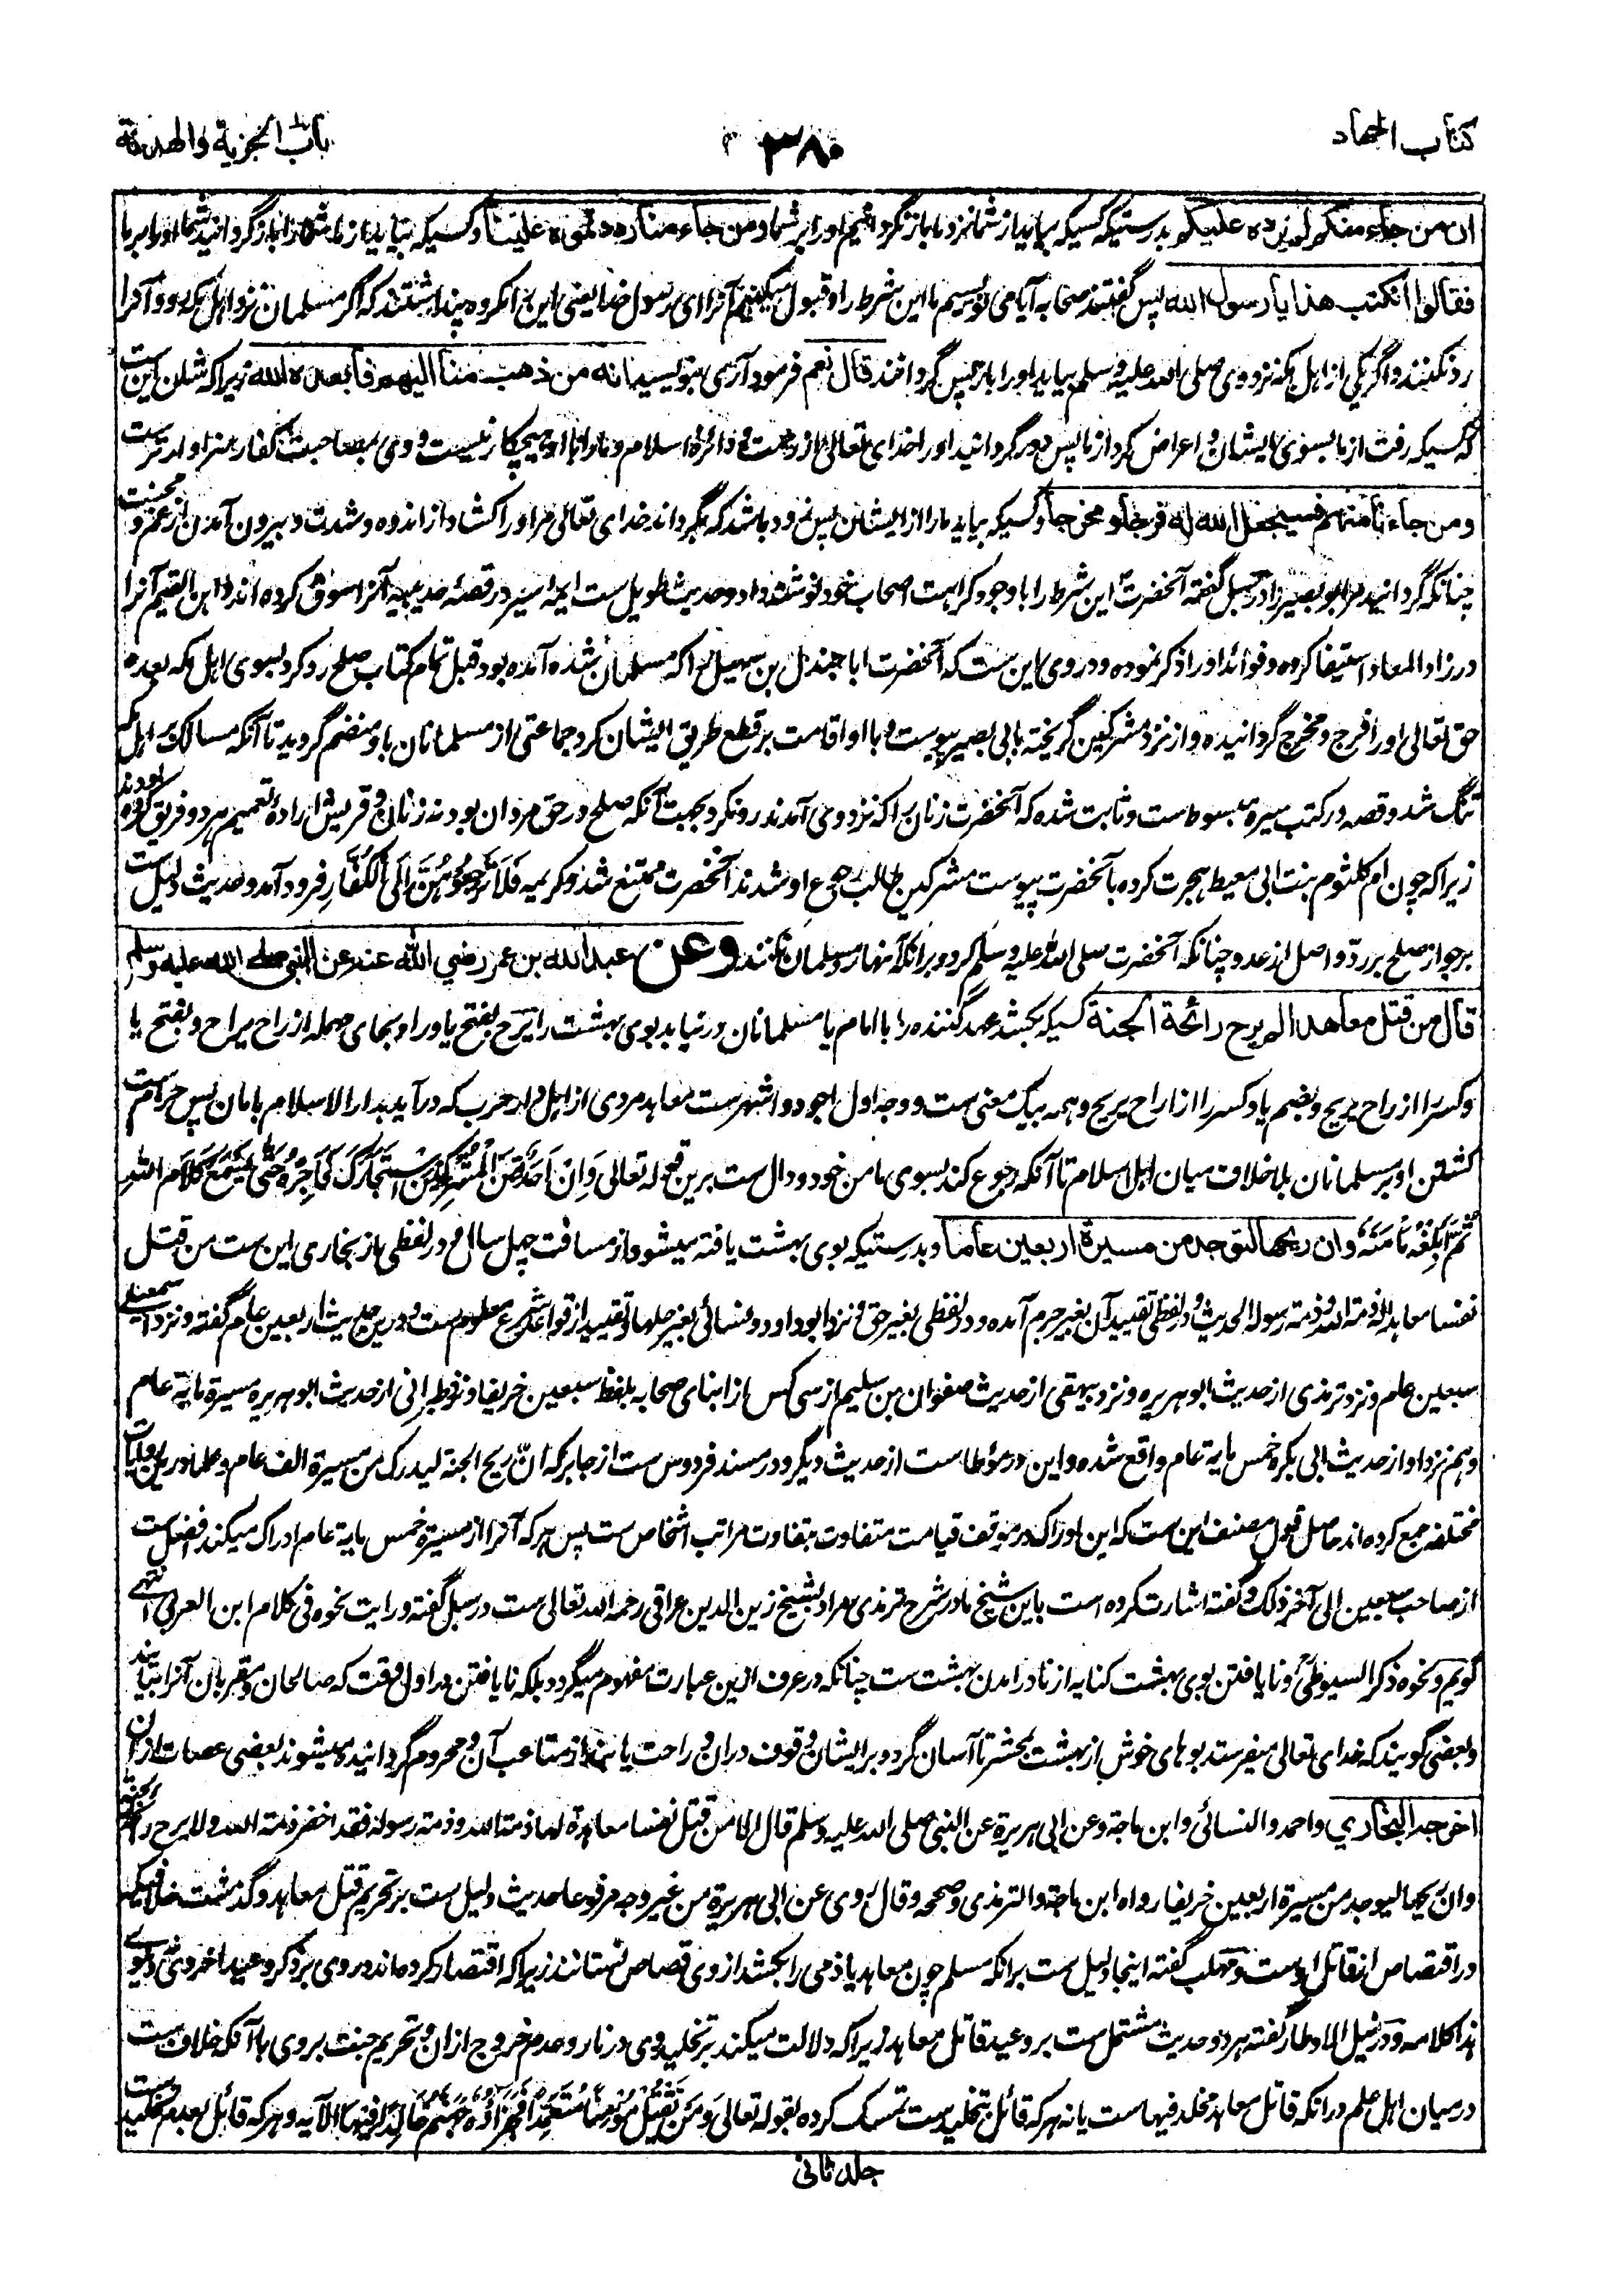 کتاب الجهاد
۳۸۰
باب الجزیة والهدنة
ان من جاء منکم لم نرده علیکم بدرستیکه کسیکه بیاید از شما نزد ما باز نگردانیم اورا بر شما و من جاء منا رددتموه علینا و کسیکه بیاید از ما شما را باز گردانید شما اورا بر ما
فقالوا أنکتب هذا یا رسول الله پس گفتند صحابه آیا می نویسیم ما این شرط را و قبول میکنیم آنرا ای رسول خدا یعنی این را مکروه پنداشتند که اگر مسلمان نزد اهل مکه رود آنرا
رد نکنند و اگر یکی از اهل مکه نزد وی صلی الله علیه وسلم بیاید اورا باز پس گردانند قال نعم فرمود آری بنویسید انه من ذهب منا الیهم فابعده الله زیرا که شان این ست
که کسیکه رفت از ما بسوی ایشان و اعراض کرد از ما پس دور گردانید اورا خدای تعالی از رحمت و دائرهٔ اسلام و ما را با او هیچ کار نیست و وی بمصاحبت کفار سزاوار ترست
و من جاءنا منهم فسیجعل الله له فرجا و مخرجا و کسیکه بیاید ما را از ایشان پس زود باشد که بگرداند خدای تعالی مر اورا کشاد از اندوه و شدت و بیرون آمدن از غم و محنت
چنانکه گردانید مر ابو بصیر را در سبل گفته آنحضرت این شرط را با وجود کراهت اصحاب خود نوشته داد و حدیث طویل ست ایمه سیر در قصهٔ حدیبیه آنرا سوق کرده اند و ابن القیم آنرا
در زاد المعاد استیفا کرده و فوائد اورا ذکر نموده و در وی این ست که آنحضرت ابا جندل بن سهیل را که مسلمان شده آمده بود قبل تمام کتاب صلح رد کرد بسوی اهل مکه بعده
حق تعالی اورا فرج و مخرج گردانیده و از نزد مشرکین گریخته بابی بصیر پیوست و با او اقامت بر قطع طریق ایشان کرد جماعتی از مسلمانان باو منضم گردید تا آنکه مسالک بر اهل مکه
تنگ شد و قصه در کتب سیره مبسوط ست و ثابت شده که آنحضرت زنان را که نزد وی آمدند رد نکرد بجهت آنکه صلح در حق مردان بود نه زنان و قریش ارادهٔ تعمیم هر دو فریق کرده بودند
زیرا که چون ام کلثوم بنت ابی معیط هجرت کرده بآنحضرت پیوست مشرکین طالب رجوع او شدند آنحضرت ممتنع شد و کریمه فَلَا تَرْجِعُوهُنَّ إِلَى الْكُفَّارِ فرود آمد و حدیث دلیل ست
بر جواز صلح بر ردّ واصل از عدو چنانکه آنحضرت صلی الله علیه وسلم کرد و برانکه آنها رد مسلمان نکنند وعن عبد الله بن عمر رضي الله عنه عن النبی صلى الله علیه وسلم
قال من قتل معاهدا لم یرح رائحة الجنة کسیکه بکشد عهد کننده را با امام یا مسلمانان در نیابد بوی بهشت را یرح بفتح یا و را و بحای مهمله از راح یراح و بفتح یا
و کسر را از راح یریح و بضم یا و کسر را از اراح یریح و همه بیک معنی ست و وجه اول اجود و اشهرست معاهد مردی از اهل دار حرب که درآید بدار الاسلام بامان پس حرام ست
کشتن او بر مسلمانان بلا خلاف میان اهل اسلام تا آنکه رجوع کند بسوی مامن خود و دال ست برین قوله تعالی وَإِنْ أَحَدٌ مِّنَ الْمُشْرِكِينَ اسْتَجَارَكَ فَأَجِرْهُ حَتَّى يَسْمَعَ كَلَامَ اللهِ
ثُمَّ أَبْلِغْهُ مَأْمَنَهُ وان ریحها لتوجد من مسیرة اربعین عاما و بدرستیکه بوی بهشت یافته میشود از مسافت چهل سال و در لفظی از بخاری این ست من قتل
نفسا معاهدا له ذمة الله و ذمة رسوله الحدیث و در لفظی تقیید آن بغیر جرم آمده و در لفظی بغیر حق و نزد ابو داود و نسائی بغیر حلها و تقیید از قواعد شرع معلوم ست و درین حدیث اربعین عام گفته و نزد اسمعیلی
سبعین عام و نزد ترمذی از حدیث ابو هریره و نزد بیهقی از حدیث صفوان بن سلیم از سی کس از ابنای صحابه بلفظ سبعین خریفا و نزد طبرانی از حدیث ابو هریره مسیرة مایة عام
و هم نزد او از حدیث ابی بکره خمس مایة عام واقع شده و این در مؤطاست از حدیث دیگر و در مسند فردوس ست از جابر که انّ ریح الجنة لیدرک من مسیرة الف عام و علما درین روایات
مختلفه جمع کرده اند حاصل قول مصنف این ست که این ادراک در موقف قیامت متفاوت بتفاوت مراتب اشخاص ست پس هر که آنرا از مسیرة خمس مایة عام ادراک میکند افضل ست
از صاحب سبعین الی آخر ذلک و گفته اشارت کرده است باین شیخ ما در شرح ترمذی مراد بشیخ زین الدین عراقی رحمه الله تعالی ست در سبل گفته و رایت نحوه فی کلام ابن العربی انتهی
گویم و نحوه ذکر السیوطی و نا یافتن بوی بهشت کنایه از نا درامدن بهشت ست چنانکه در عرف ازین عبارت مفهوم میگردد بلکه نا یافتن در اول وقت که صالحان و مقربان آنرا بیابند
و بعضی گویند که خدای تعالی میفرستد بوهای خوش از بهشت بمحشر تا آسان گردد بر ایشان وقوف دران و راحت یابند از متاعب آن و محروم گردانیده میشوند بعضی عصات ازان
اخرجه البخاري واحمد و النسائی و ابن ماجة وعن ابی هریرة عن النبی صلی الله علیه وسلم قال الا من قتل نفسا معاهدة لها ذمة الله و ذمة رسوله فقد اخفر ذمة الله ولا یرح رائحة الجنة
وان ریحها لیوجد من مسیرة اربعین خریفا رواه ابن ماجة و الترمذی و صححه وقال روی عن ابی هریرة من غیر وجه مرفوعا حدیث دلیل ست بر تحریم قتل معاهد و گذشت خلافیکه
در اقتصاص از قاتل اوست و مهلب گفته اینجا دلیل ست برانکه مسلم چون معاهد یا ذمی را بکشد از وی قصاص نستانند زیرا که اقتصار کرده اند در وی بر ذکر وعید اخروی نه دنیوی
هذا کلامه و در نیل الاوطار گفته هر دو حدیث مشتمل ست بر وعید قاتل معاهد زیرا که دلالت میکند بر تخلید وی در نار و عدم خروج ازان و تحریم جنت بر وی با آنکه خلاف ست
در میان اهل علم درانکه قاتل معاهد مخلد فیهاست یا نه هر که قائل بتخلیدست تمسک کرده بقوله تعالی وَمَن يَقْتُلْ مُؤْمِنًا مُّتَعَمِّدًا فَجَزَاؤُهُ جَهَنَّمُ خَالِدًا فِيهَا الآیه و هر که قائل بعدم تخلیدست
جلد ثانی